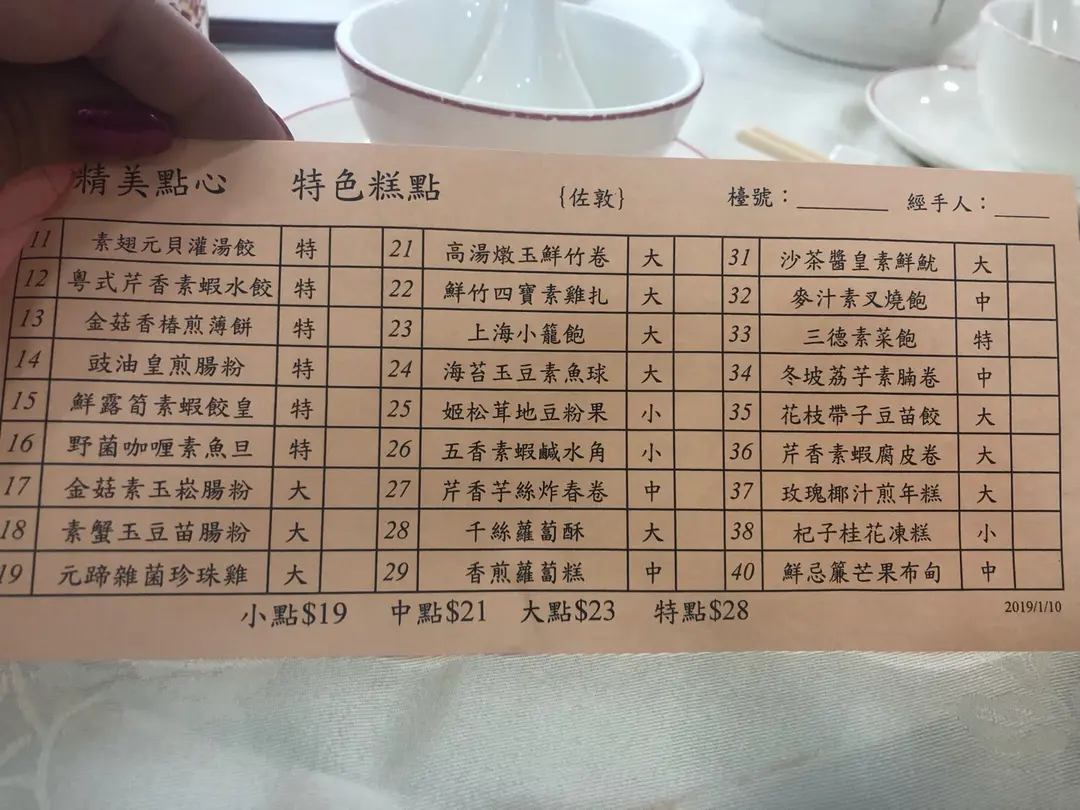 精美點心 特色糕點 {佐敦} 檯號：______ 經手人：____
11 素翅元貝灌湯餃 特 21 高湯燉玉鮮竹卷 大 31 沙茶醬皇素鮮魷 大
12 粵式芹香素蝦水餃 特 22 鮮竹四寶素雞扎 大 32 麥汁素叉燒飽 中
13 金菇香椿煎薄餅 特 23 上海小籠飽 大 33 三德素菜飽 特
14 豉油皇煎腸粉 特 24 海苔玉豆素魚球 大 34 冬坡荔芋素腩卷 中
15 鮮露筍素蝦餃皇 特 25 姬松茸地豆粉果 小 35 花枝帶子豆苗餃 大
16 野菌咖喱素魚旦 特 26 五香素蝦鹹水角 小 36 芹香素蝦腐皮卷 大
17 金菇素玉崧腸粉 大 27 芹香芋絲炸春卷 中 37 玫瑰椰汁煎年糕 大
18 素蟹玉豆苗腸粉 大 28 千絲蘿蔔酥 大 38 杞子桂花凍糕 小
19 元蹄雜菌珍珠雞 大 29 香煎蘿蔔糕 中 40 鮮忌簾芒果布甸 中
小點$19 中點$21 大點$23 特點$28 2019/1/10